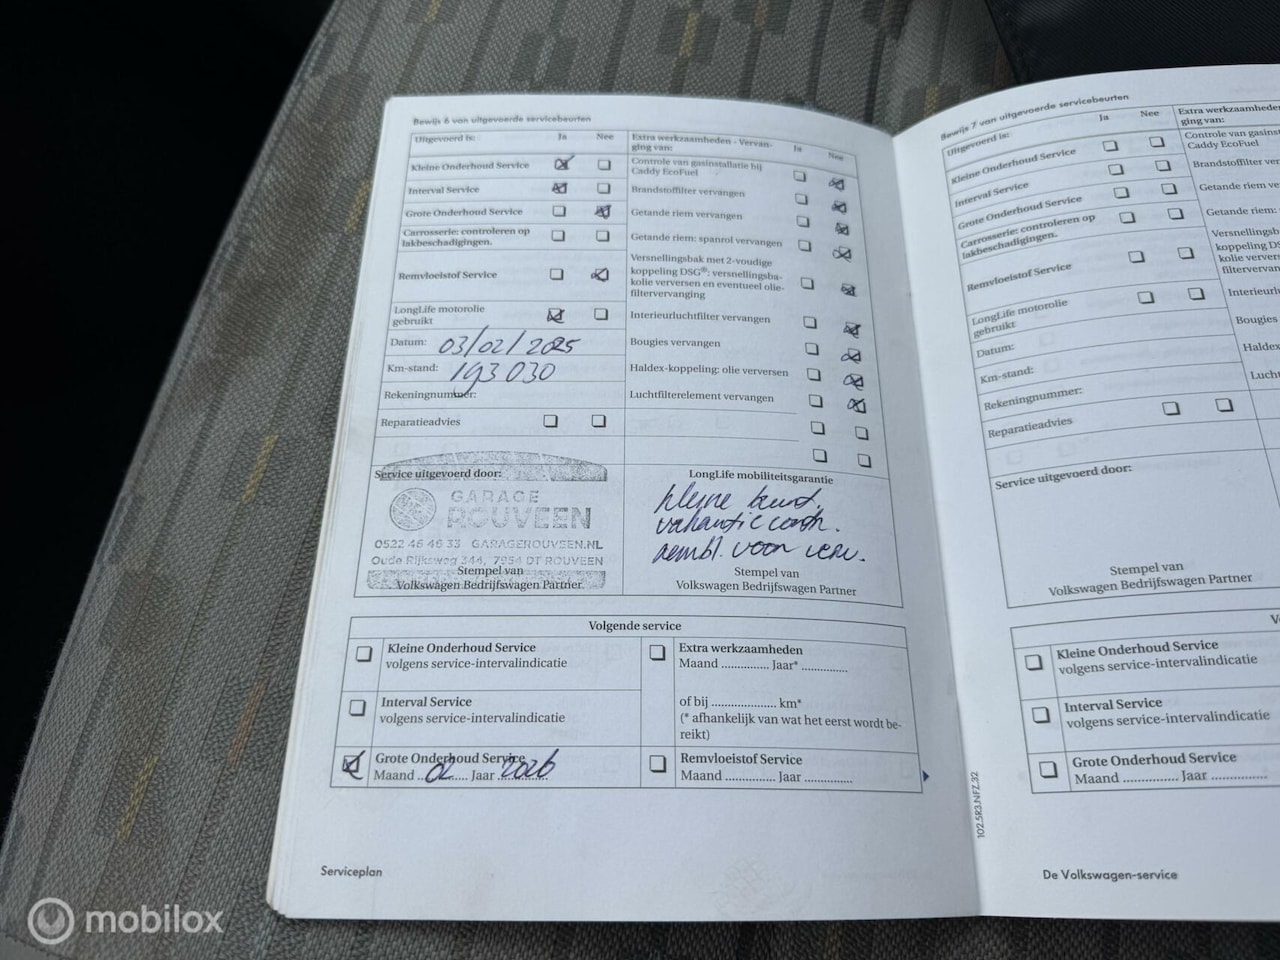 Bewijs 6 van uitgevoerde servicebeurten
Uitgevoerd is: Ja Nee
Kleine Onderhoud Service
Interval Service
Grote Onderhoud Service
Carrosserie: controleren op
lakbeschadigingen.
Remvloeistof Service
LongLife motorolie
gebruikt
Datum: 03/02/2025
Km-stand: 193 030
Rekeningnummer:
Reparatieadvies
Extra werkzaamheden - Vervan-
ging van: Ja Nee
Controle van gasinstallatie bij
Caddy EcoFuel
Brandstoffilter vervangen
Getande riem vervangen
Getande riem: spanrol vervangen
Versnellingsbak met 2-voudige
koppeling DSG®: versnellingsba-
kolie verversen en eventueel olie-
filtervervanging
Interieurluchtfilter vervangen
Bougies vervangen
Haldex-koppeling: olie verversen
Luchtfilterelement vervangen
Service uitgevoerd door:
GARAGE
ROUVEEN
0522 46 46 33 GARAGEROUVEEN.NL
Oude Rijksweg 344, 7954 DT ROUVEEN
Stempel van
Volkswagen Bedrijfswagen Partner.
LongLife mobiliteitsgarantie
kleine beurt.
vakantie contr.
aembl. voor verv.
Stempel van
Volkswagen Bedrijfswagen Partner
Volgende service
Kleine Onderhoud Service
volgens service-intervalindicatie
Interval Service
volgens service-intervalindicatie
Grote Onderhoud Service
Maand 02 Jaar 2026
Extra werkzaamheden
Maand .............. Jaar* ..............
of bij .................... km*
(* afhankelijk van wat het eerst wordt be-
reikt)
Remvloeistof Service
Maand .............. Jaar ..............
Serviceplan
102.5R3.NFZ.32
Bewijs 7 van uitgevoerde servicebeurten
Uitgevoerd is: Ja Nee
Kleine Onderhoud Service
Interval Service
Grote Onderhoud Service
Carrosserie: controleren op
lakbeschadigingen.
Remvloeistof Service
LongLife motorolie
gebruikt
Datum:
Km-stand:
Rekeningnummer:
Reparatieadvies
Extra werkzaamheden
ging van:
Controle van gasins
Caddy EcoFuel
Brandstoffilter ver
Getande riem verv
Getande riem:
Versnellingsb
koppeling DS
kolie verver
filtervervan
Interieurl
Bougies
Haldex
Lucht
Service uitgevoerd door:
Stempel van
Volkswagen Bedrijfswagen Partner
Kleine Onderhoud Service
volgens service-intervalindicatie
Interval Service
volgens service-intervalindicatie
Grote Onderhoud Service
Maand .............. Jaar ..............
De Volkswagen-service
mobilox